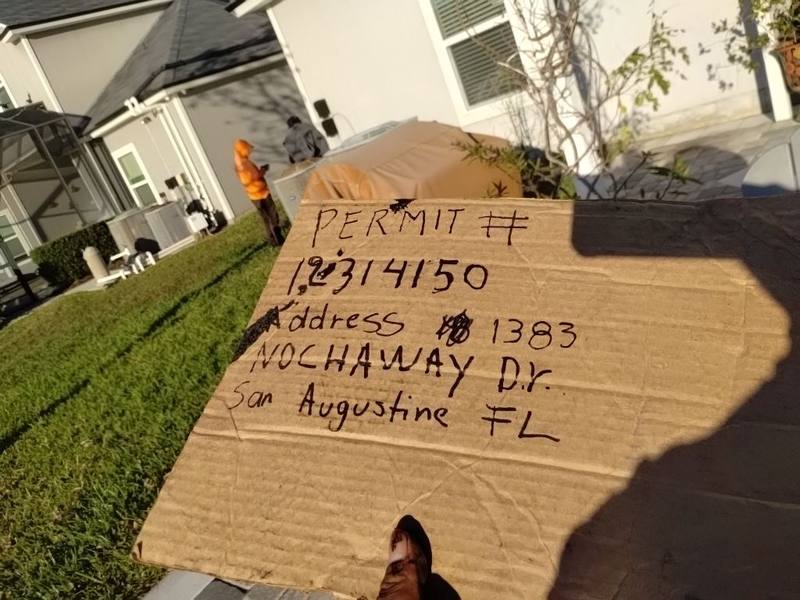 PERMIT #
12314150
Address 1383
NOCHAWAY Dr.
San Augustine FL